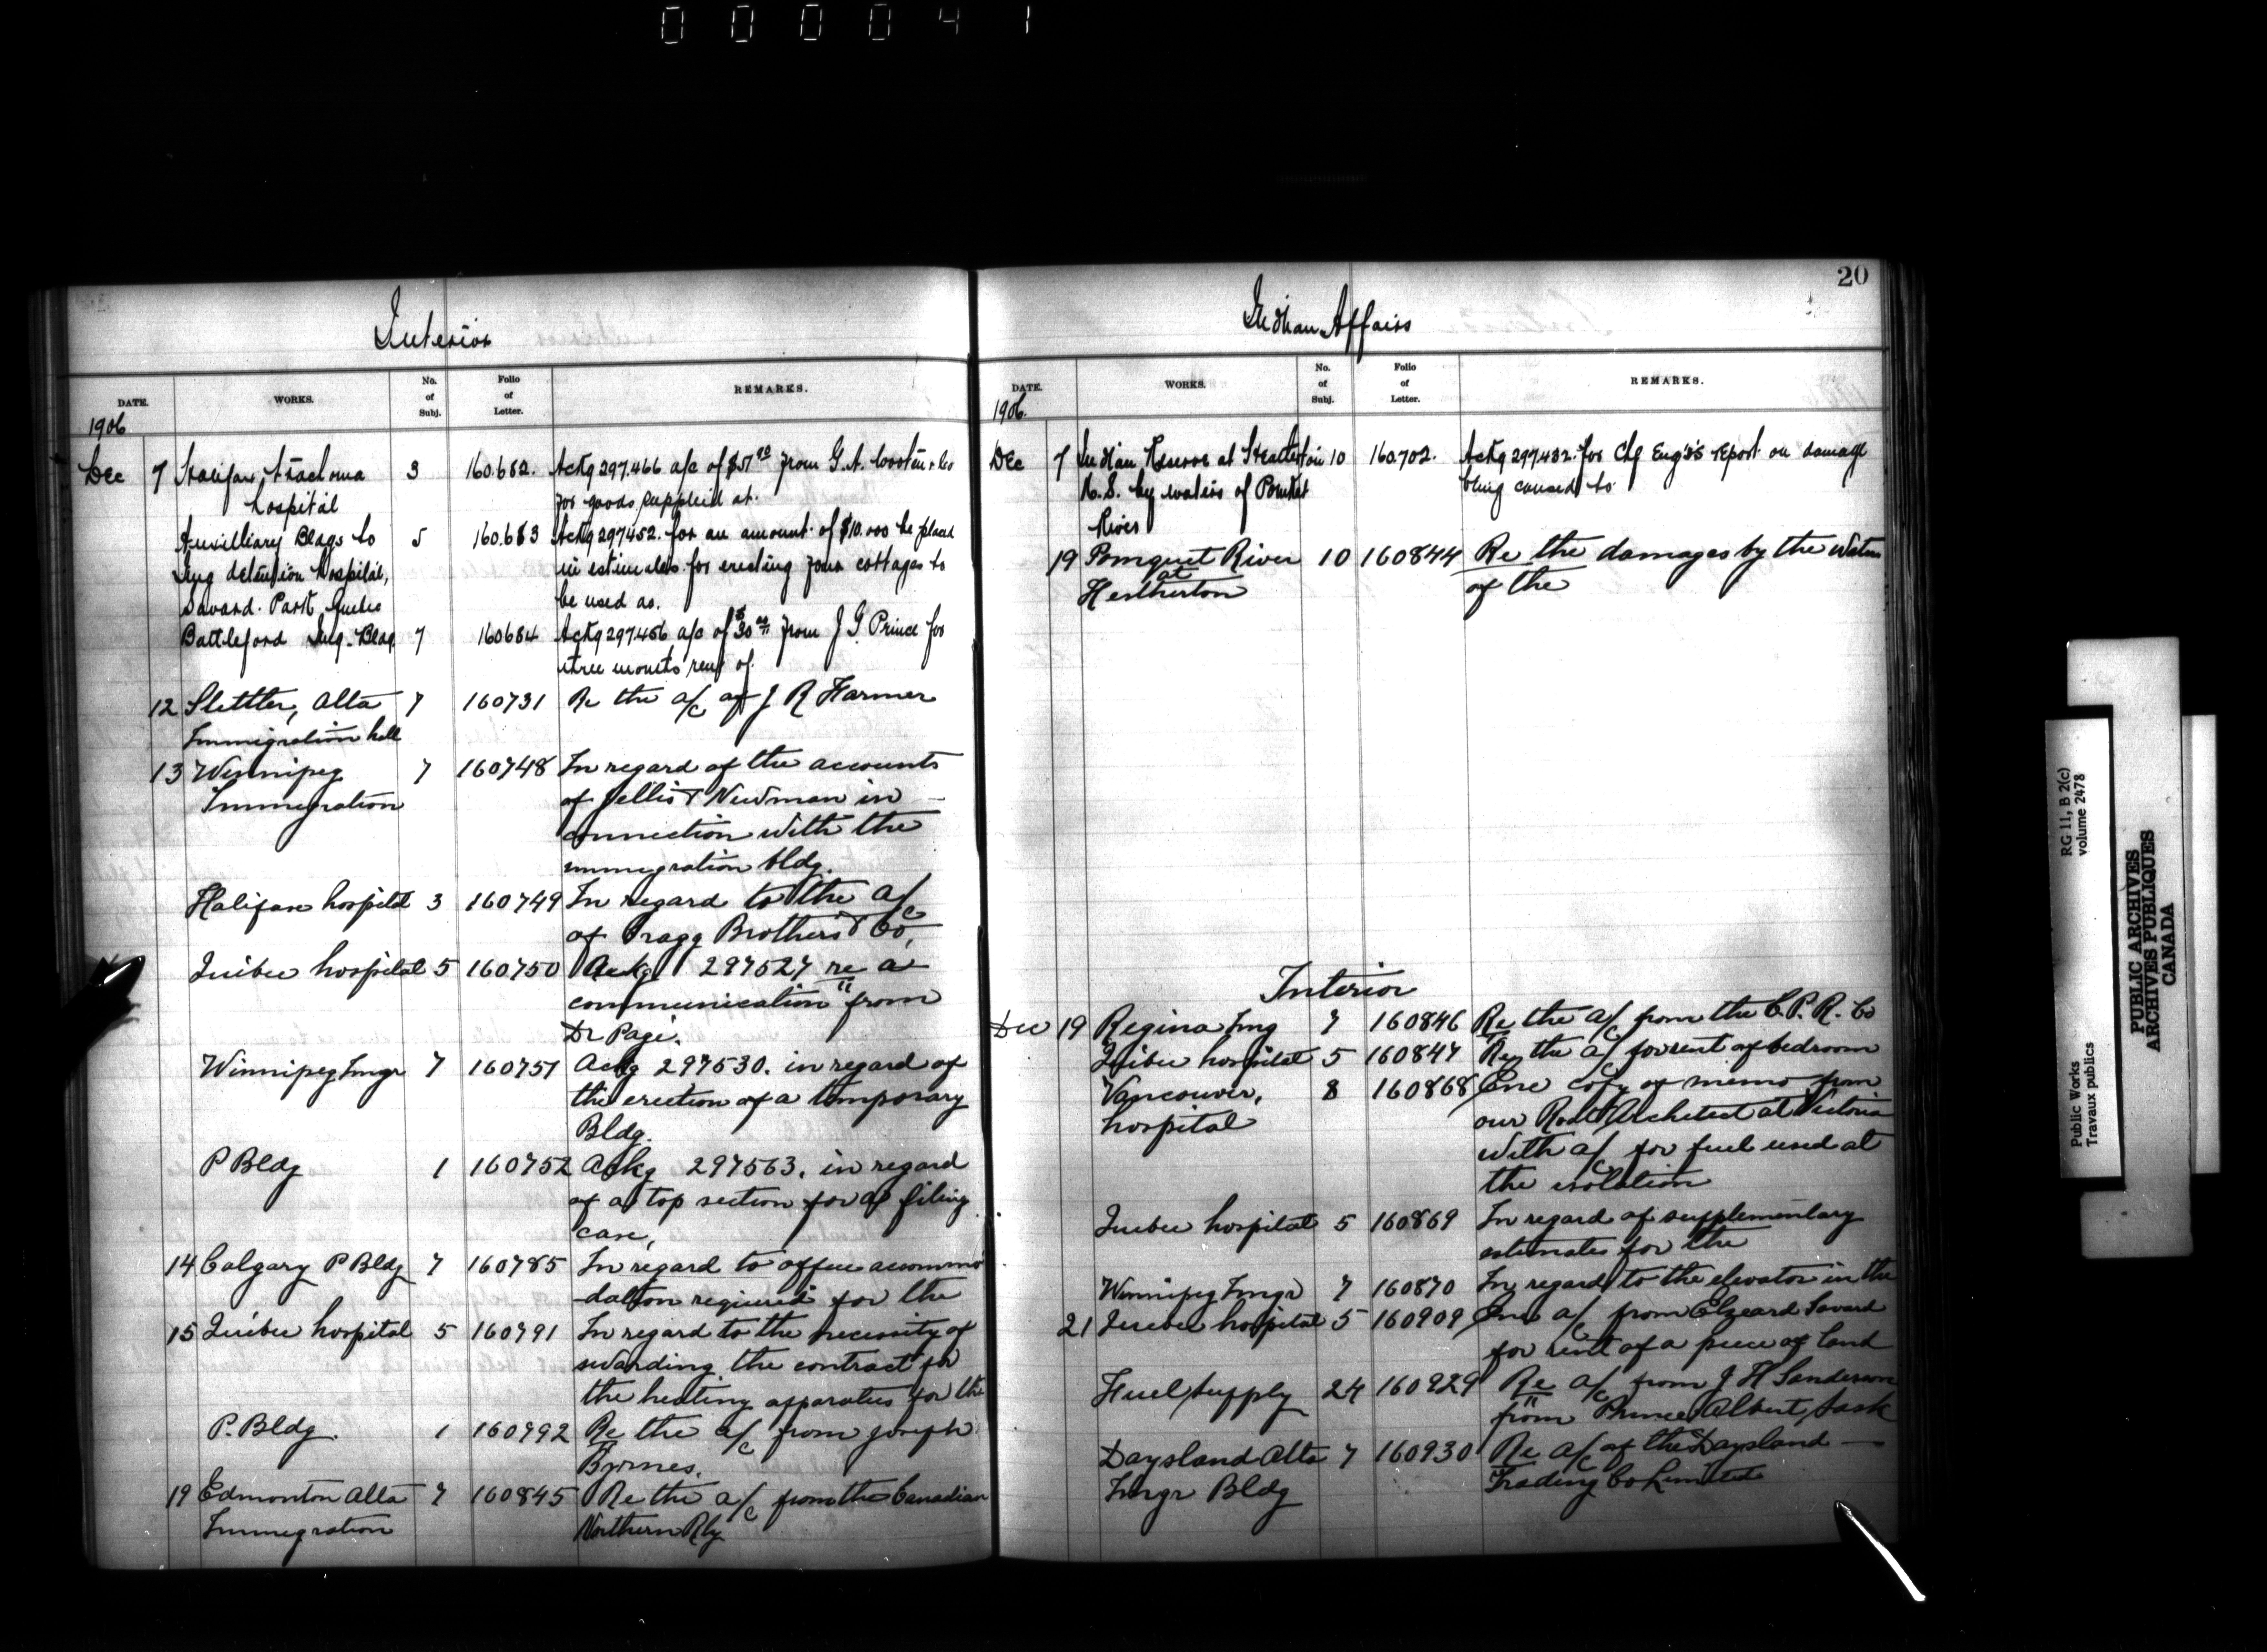 0 0 0 0 4 1
Interior
DATE. WORKS. No. of Subj. Folio of Letter. REMARKS.
1906
Dec 7 Halifax, trachoma 3 160.682. Ackg 297.466 a/c of $51 from G. A.
hospital for goods supplied at.
Auxilliary Bldgs to 5 160.683 Ackg 297452. for an amount of $10.000 be placed
Img detention hospital, in estimates for erecting four cottages to
Savard. Park Quebec be used as.
Battleford Img. Bldg. 7 160684 Ackg 297456 a/c of $30 from J G Prince for
three months rent of.
12 Stettler, Alta 7 160731 Re the a/c of J R Farmer
Immigration hall
13 Winnipeg 7 160748 In regard of the accounts
Immigration of Jellis & Newman in
connection with the
immigration bldg.
Halifax hospital 3 160749 In regard to the a/c
of Cragg Brothers & Co,
Quebec hospital 5 160750 Ackg 297527 re a
communication from
Dr Page.
Winnipeg Imgr 7 160751 Ackg 297530. in regard of
the erection of a temporary
Bldg.
P Bldg 1 160752 Ackg 297563. in regard
of a top section for a filing
case,
14 Calgary P Bldg 7 160785 In regard to office accommo
-dation required for the
15 Quebec hospital 5 160791 In regard to the necessity of
awarding the contract for
the heating apparatus for the
P. Bldg. 1 160792 Re the a/c from Joseph
Byrnes.
19 Edmonton Alta 7 160845 Re the a/c from the Canadian
Immigration Northern Rly
20
Indian Affairs
DATE. WORKS. No. of Subj. Folio of Letter. REMARKS.
1906.
Dec 7 Indian Reserve at Heatherton 10 160.702. Ackg 297432. for Chf Eng's report on damage
N.S. by waters of Pomket being caused to
River
19 Pomquet River 10 160844 Re the damages by the waters
at of the
Heatherton
Interior
Dec 19 Regina Img 7 160846 Re the a/c from the C. P. R. Co
Quebec hospital 5 160847 Re the a/c for rent of bedroom
Vancouver, 8 160868 Enc copy of memo from
hospital our Rdt Architect at Victoria
with a/c for fuel used at
the isolation
Quebec hospital 5 160869 In regard of supplementary
estimates for the
Winnipeg Imgr 7 160870 In regard to the elevator in the
21 Quebec hospital 5 160909 Enc a/c from Elzeard Savard
for rent of a piece of land
Fuel supply 24 160929 Re a/c from J H Sanderson
from Prince Albert, Sask
Daysland Alta 7 160930 Re a/c of the Daysland
Imgr Bldg Trading Co Limited
RG 11, B 2(c)
volume 2478
Public Works
Travaux publics
PUBLIC ARCHIVES
ARCHIVES PUBLIQUES
CANADA